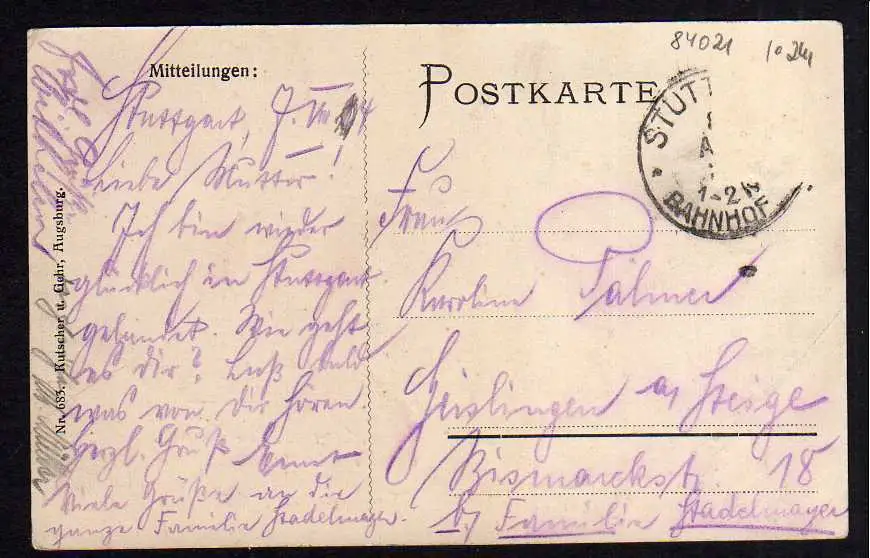 84021
Mitteilungen:
POSTKARTE
STUTT
1-2 N
BAHNHOF
Stuttgart, 7.
Liebe Mutter!
Ich bin wieder
glücklich in Stuttgart
gelandet. Wie geht
es dir? Laß bald
was von Dir hören.
Herzl. Gruß
Viele Grüße an die
ganze Familie Stadelmayer.
Frau
Karoline Palmer
Geislingen a/ Steige
Bismarckst. 18
b/ Familie Stadelmayer
Nr. 683. Kutscher u. Gehr, Augsburg.